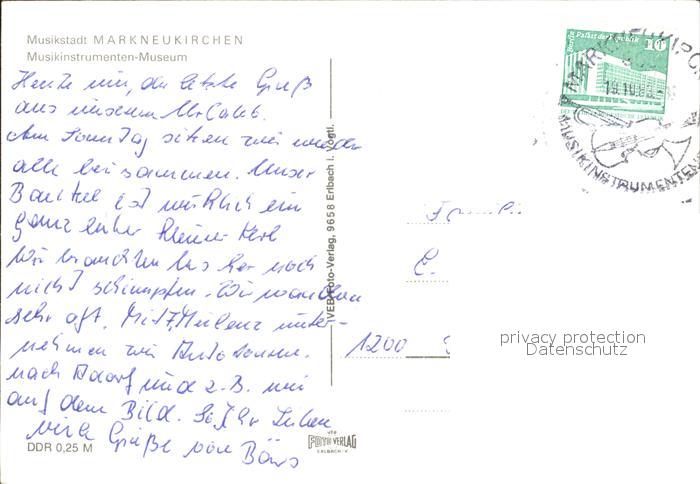 Musikstadt MARKNEUKIRCHEN
Musikinstrumenten-Museum
Heute nur, der letzte Gruß
aus unserem Urlaub.
Am Sonntag sitzen wir wieder
alle beisammen. Unser
ist wirklich ein
ganz lieber kleiner Kerl
Wir brauchten bis her noch
nicht schimpfen. Wir wandern
sehr oft. Mit unter-
nehmen wir Autotouren.
nach Adorf und z.B. wie
auf dem Bild. So, Ihr Lieben
viele Grüße von
DDR 0,25 M
VEB Foto-Verlag, 9658 Erlbach i. Vogtl.
VEB
FOTO VERLAG
ERLBACH/V
Berlin Palast der Republik
10
DDR
MARKNEUKIRCHEN
19.10.
MUSIKINSTRUMENTEN
1200
privacy protection
Datenschutz